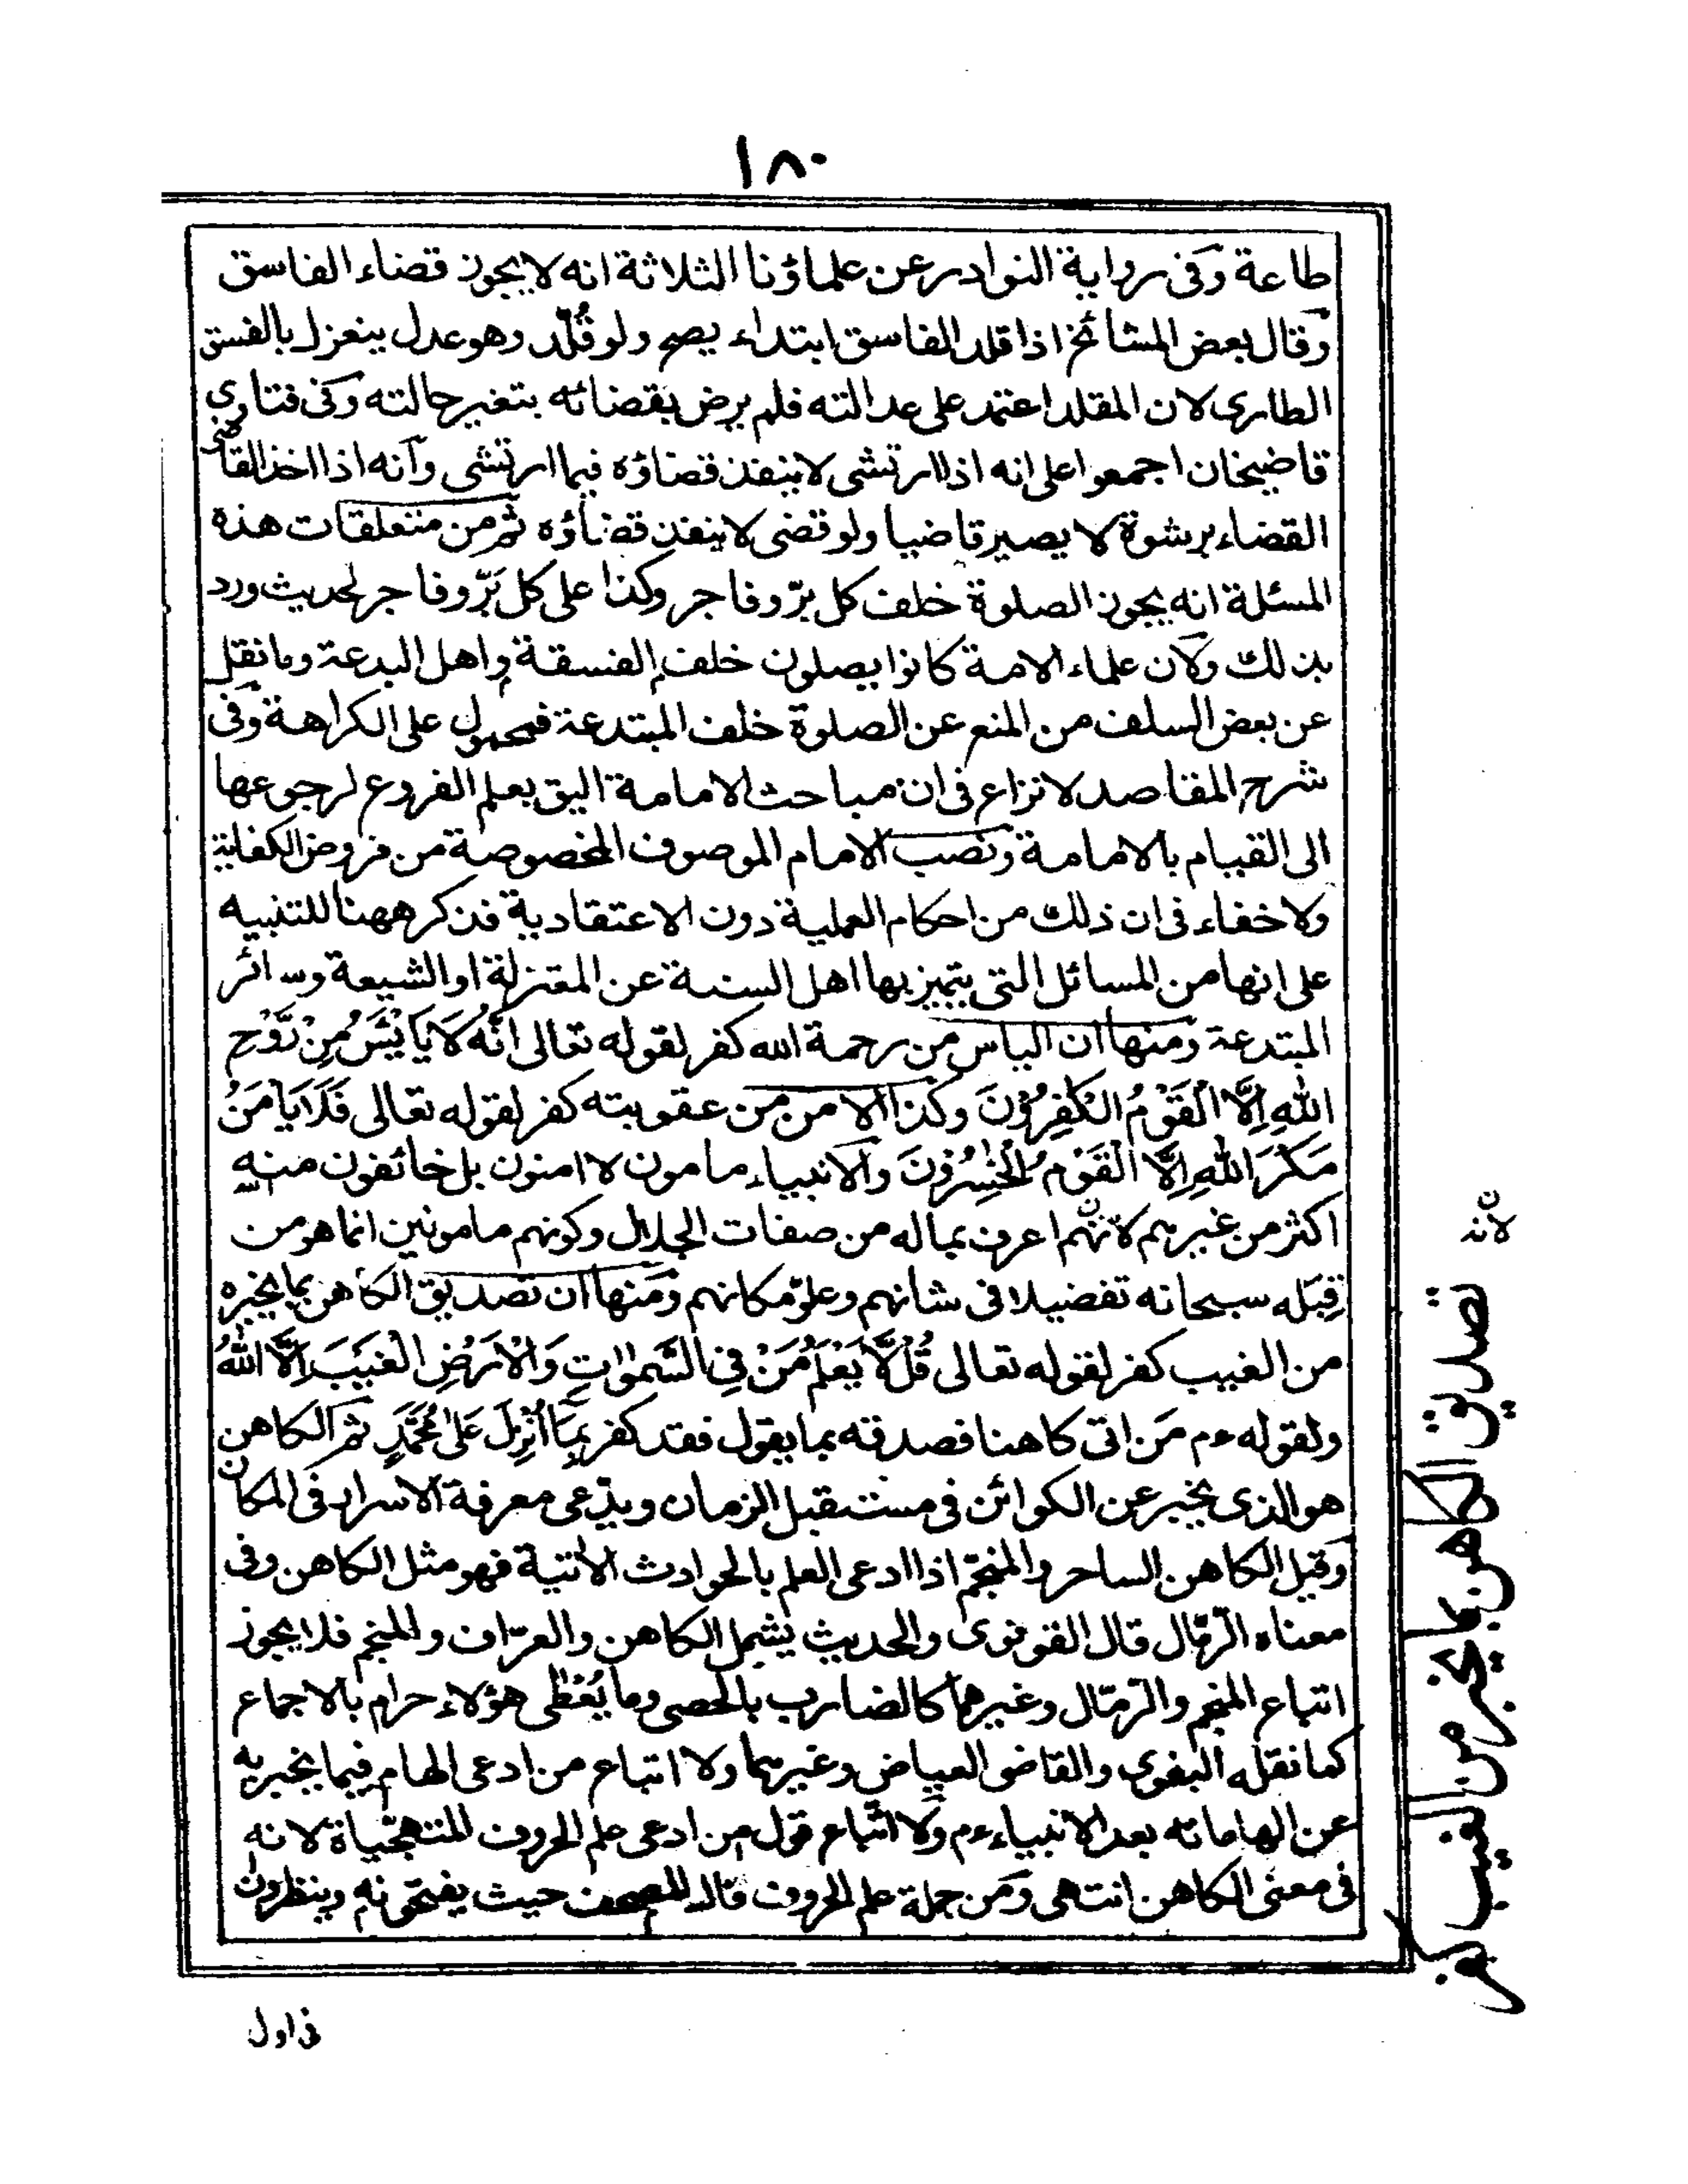 ١٨٠
طاعة وفى رواية النوادر عن علماؤنا الثلاثة انه لا يجوز قضاء الفاسق
وقال بعض المشائخ اذا قلد الفاسق ابتداء يصح ولو قُلّد وهو عدل ينعزل بالفسق
الطارى لان المقلد اعتمد على عدالته فلم يرض بقضائه بتغير حالته وفى فتاوى
قاضيخان اجمعوا على انه اذا ارتشى لا ينفذ قضاؤه فيما ارتشى وانه اذا اخذ القاضى
القضاء برشوة لا يصير قاضيا ولو قضى لا ينفذ قضاؤه ثم من متعلقات هذه
المسئلة انه يجوز الصلوة خلف كل برّ وفاجر وكذا على كل بَرّ وفاجر لحديث ورد
بذلك ولان علماء الامة كانوا يصلون خلف الفسقة واهل البدعة وما نقل
عن بعض السلف من المنع عن الصلوة خلف المبتدعة فمحمول على الكراهة وفى
شرح المقاصد لا نزاع فى ان مباحث الامامة اليق بعلم الفروع لرجوعها
الى القيام بالامامة ونصب الامام الموصوف المخصوصة من فروض الكفاية
ولا خفاء فى ان ذلك من احكام العملية دون الاعتقادية فذكر ههنا للتنبيه
على انها من المسائل التى يتميز بها اهل السنة عن المعتزلة او الشيعة وسائر
المبتدعة ومنها ان الياس من رحمة الله كفر لقوله تعالى اِنَّهٗ لَا يَايْئَسُ مِنْ رَّوْحِ
اللّٰهِ اِلَّا الْقَوْمُ الْكٰفِرُوْنَ وكذا الامن من عقوبته كفر لقوله تعالى فَلَا يَاْمَنُ
مَكْرَ اللّٰهِ اِلَّا الْقَوْمُ الْخٰسِرُوْنَ والانبياء مامون لا امنون بل خائفون منه
اكثر من غيرهم لانهم اعرف بماله من صفات الجلال وكونهم مامونين انما هو من
قِبَله سبحانه تفضيلا فى شانهم وعلوّ مكانهم ومنها ان تصديق الكاهن بما يخبره
من الغيب كفر لقوله تعالى قُلْ لَّا يَعْلَمُ مَنْ فِى السَّمٰوٰتِ وَالْاَرْضِ الْغَيْبَ اِلَّا اللّٰهُ
ولقوله عم مَن اتى كاهنا فصدقه بما يقول فقد كفر بِمَا اُنْزِلَ عَلٰى مُحَمَّدٍ ثم الكاهن
هو الذى يخبر عن الكوائن فى مستقبل الزمان ويدّعى معرفة الاسرار فى المكان
وقيل الكاهن الساحر والمنجّم اذا ادعى العلم بالحوادث الاتية فهو مثل الكاهن وفى
معناه الرّمّال قال القونوى والحديث يشمل الكاهن والعرّاف والمنجم فلا يجوز
اتباع المنجم والرّمّال وغيرهما كالضارب بالحصى وما يُعْطٰى هؤلاء حرام بالاجماع
كما نقله البغوى والقاضى العياض وغيرهما ولا اتباع من ادعى الهام فيما يخبر به
عن الهاماته بعد الانبياء عم ولا اتّباع قول من ادعى علم الحروف المتهجّياة لانه
فى معنى الكاهن انتهى ومن جملة علم الحروف فال المصحف حيث يفتحونه وينظرون
لانه
تصديق الكاهن بما يخبر من الغيب كفر
فى اول